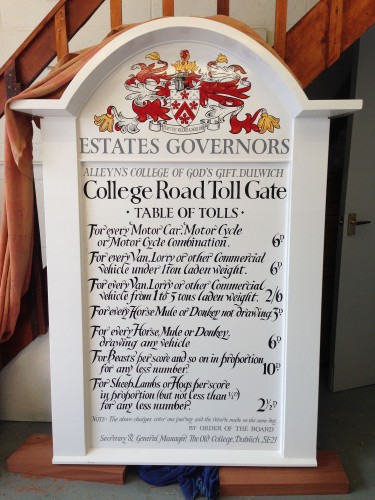 ESTATES GOVERNORS
ALLEYN'S COLLEGE OF GOD'S GIFT, DULWICH
College Road Toll Gate
· TABLE OF TOLLS ·
For every Motor Car, Motor Cycle
or Motor Cycle Combination. 6D
For every Van, Lorry or other Commercial
vehicle under 1 ton laden weight. 6D
For every Van, Lorry or other Commercial
vehicle from 1 to 5 tons laden weight. 2/6
For every Horse, Mule or Donkey not drawing 3D
For every Horse, Mule or Donkey,
drawing any vehicle 6D
For Beasts per score and so on in proportion
for any less number. 10D
For Sheep, Lambs or Hogs per score
in proportion (but not less than ½D)
for any less number. 2½D
NOTE: The above charges cover one journey and the return made on the same day.
BY ORDER OF THE BOARD
Secretary & General Manager, The Old College, Dulwich, SE21